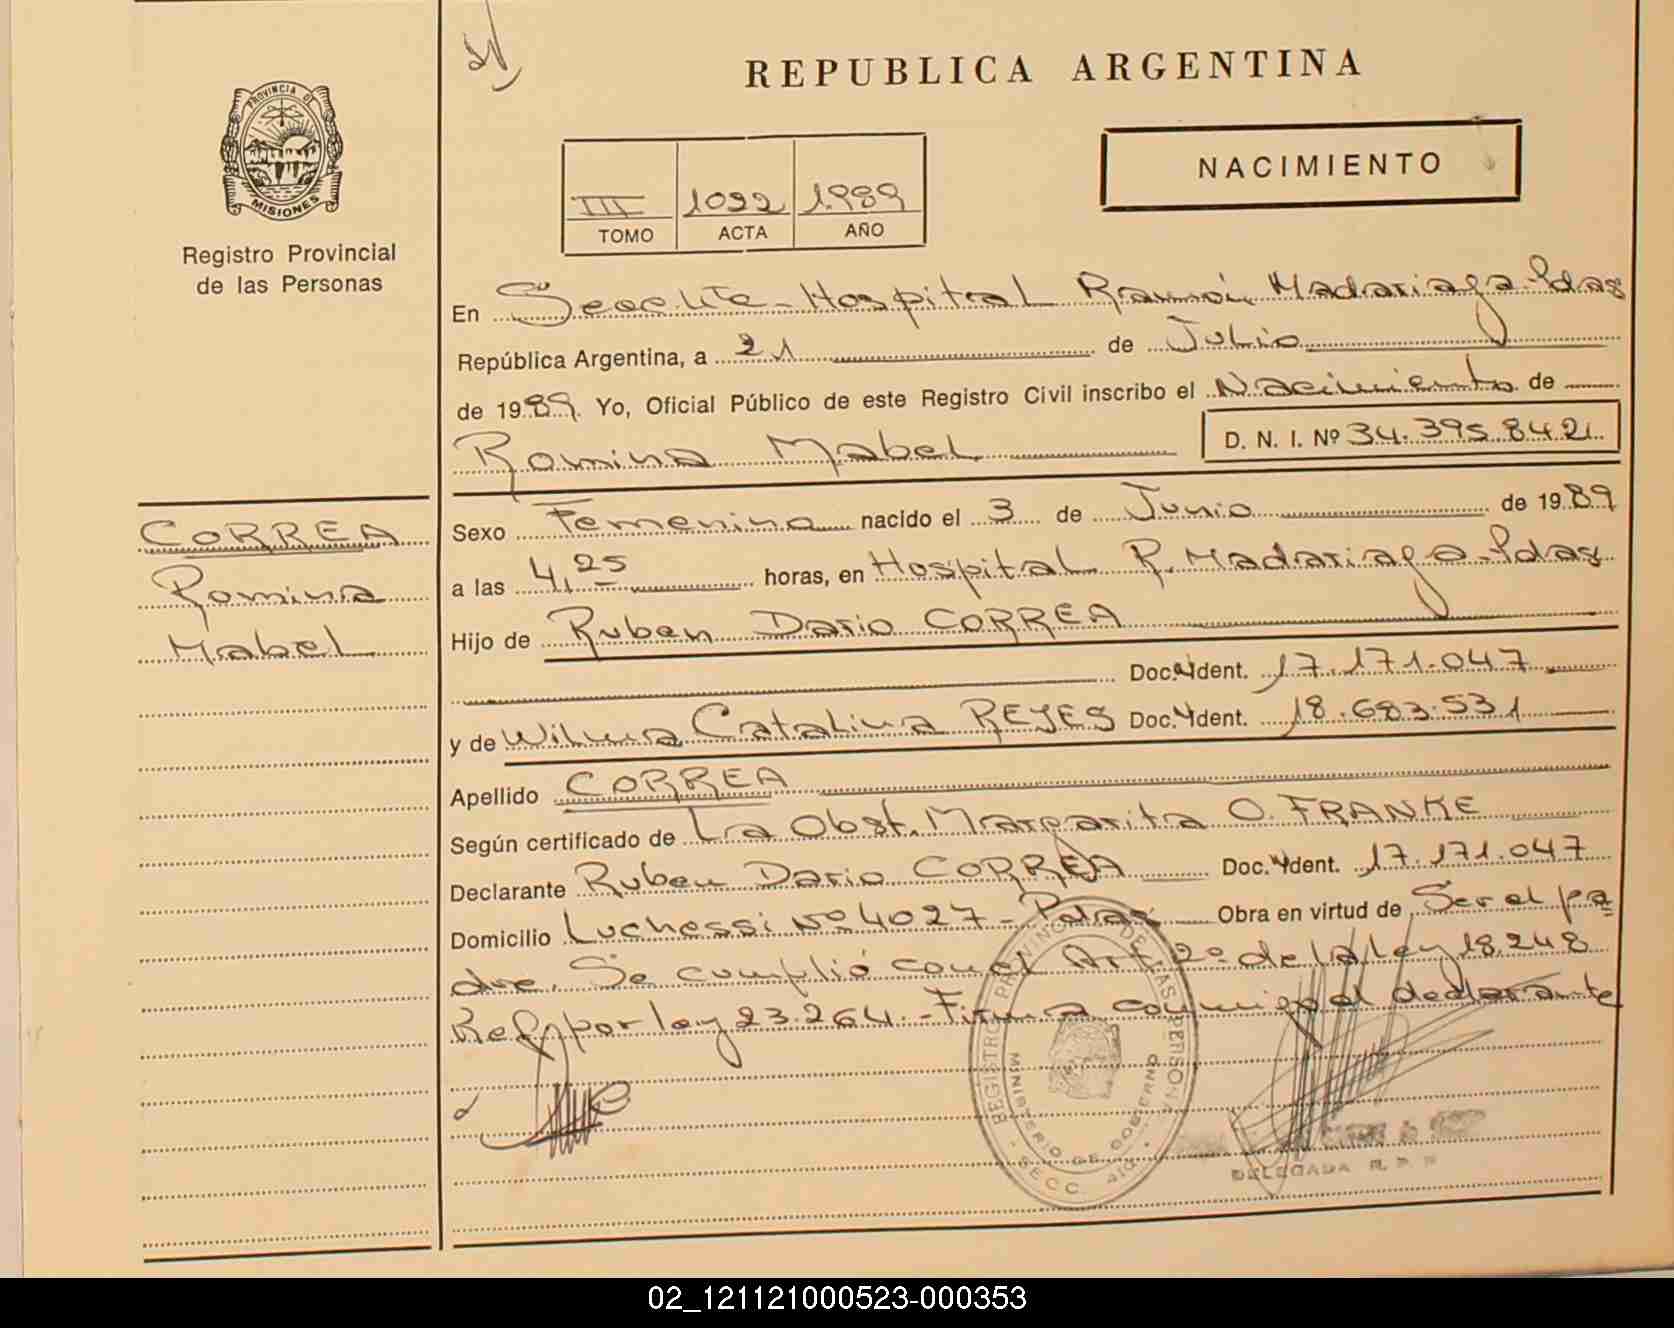 REPUBLICA ARGENTINA
PROVINCIA DE
MISIONES
Registro Provincial
de las Personas
NACIMIENTO
III 1092 1989
TOMO ACTA AÑO
En Secc. Hospital Ramón Madariaga. Pdas
República Argentina, a 21 de Julio
de 1989. Yo, Oficial Público de este Registro Civil inscribo el Nacimiento de
Romina Mabel D. N. I. Nº 34.395.842
CORREA
Romina
Mabel
Sexo Femenino nacido el 3 de Junio de 1989
a las 4,25 horas, en Hospital R. Madariaga - Pdas
Hijo de Ruben Dario CORREA
Doc. Ident. 17.171.047
y de Wilma Catalina REYES Doc. Ident. 18.683.531
Apellido CORREA
Según certificado de La Obst. Margarita O. FRANKE
Declarante Ruben Dario CORREA Doc. Ident. 17.171.047
Domicilio Luchessi Nº 4027 - Pdas Obra en virtud de Ser el pa
dre. Se cumplió con el Art 2º de la ley 18.248
Ref. por ley 23.264. - Firma conmigo el declarante
REGISTRO PROVINCIAL DE LAS PERSONAS
MINISTERIO DE GOBIERNO
SECC.
DELEGADA R. P. P.
02_121121000523-000353